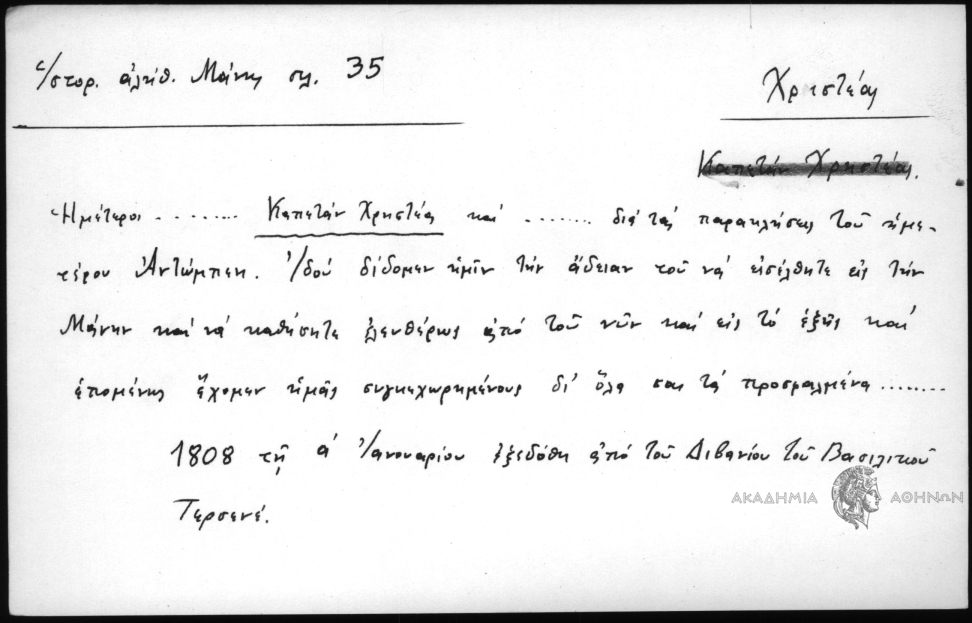 Ἱστορ. ἀλήθ. Μάνης σελ. 35
Χρηστέας
Καπετάν Χρηστέας.
Ἡμέτεροι ......... Καπετάν Χρηστέας καί ........ διά τάς παρακλήσεις τοῦ ἡμε-
τέρου Ἀντώμπεη. Ἰδού δίδομεν ἡμῖν τήν ἄδειαν τοῦ νά εἰσέλθητε εἰς τήν
Μάνην καί νά καθήσητε ἐλευθέρως ἀπό τοῦ νῦν καί εἰς τό ἑξῆς καί
ἑπομένως ἔχομεν ἡμᾶς συγκεχωρημένους δι' ὅλα σας τά προσφαλμένα ........
1808 τῇ α' Ἰανουαρίου ἐξεδόθη ἀπό τοῦ Διβανίου τοῦ Βασιλικοῦ
Τερσενέ.
ΑΚΑΔΗΜΙΑ ΑΘΗΝΩΝ